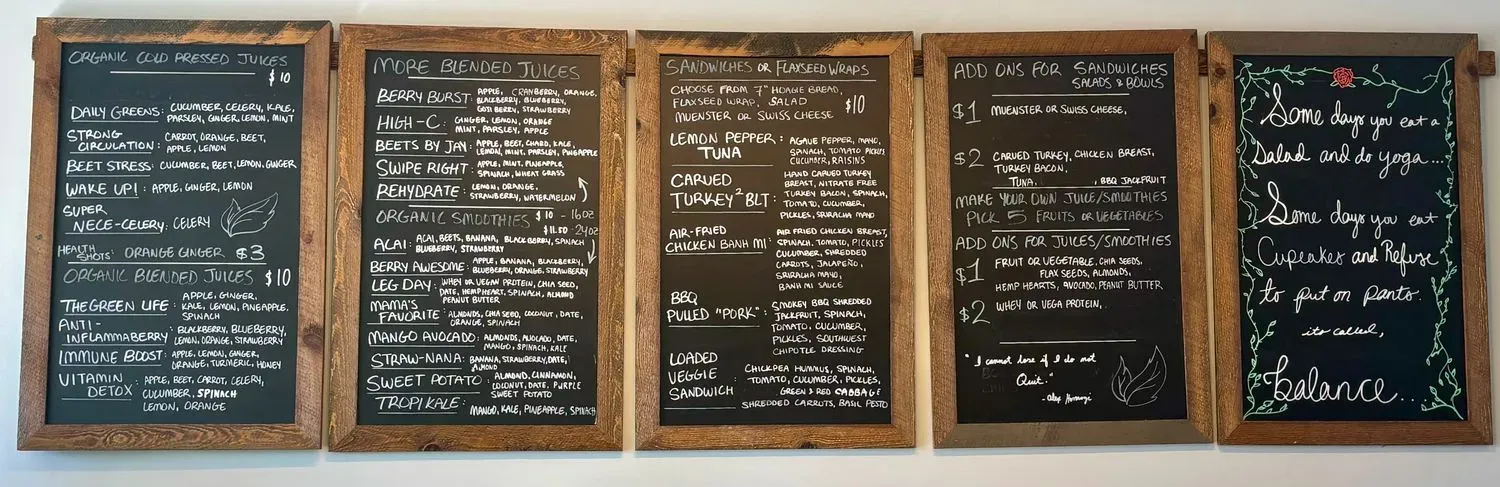 ORGANIC COLD PRESSED JUICES
$10
DAILY GREENS: CUCUMBER, CELERY, KALE,
PARSLEY, GINGER, LEMON, MINT
STRONG CIRCULATION: CARROT, ORANGE, BEET,
APPLE, LEMON
BEET STRESS: CUCUMBER, BEET, LEMON, GINGER
WAKE UP!: APPLE, GINGER, LEMON
SUPER
NECE-CELERY: CELERY
HEALTH SHOTS: ORANGE GINGER $3
ORGANIC BLENDED JUICES $10
THE GREEN LIFE: APPLE, GINGER,
KALE, LEMON, PINEAPPLE,
SPINACH
ANTI-INFLAMMABERRY: BLACKBERRY, BLUEBERRY,
LEMON, ORANGE, STRAWBERRY
IMMUNE BOOST: APPLE, LEMON, GINGER,
ORANGE, TURMERIC, HONEY
VITAMIN DETOX: APPLE, BEET, CARROT, CELERY,
CUCUMBER, SPINACH
LEMON, ORANGE
MORE BLENDED JUICES
BERRY BURST: APPLE, CRANBERRY, ORANGE,
BLACKBERRY, BLUEBERRY,
GOJI BERRY, STRAWBERRY
HIGH-C: GINGER, LEMON, ORANGE
MINT, PARSLEY, APPLE
BEETS BY JAY: APPLE, BEET, CHARD, KALE,
LEMON, MINT, PARSLEY, PINEAPPLE
SWIPE RIGHT: APPLE, MINT, PINEAPPLE,
SPINACH, WHEAT GRASS
REHYDRATE: LEMON, ORANGE,
STRAWBERRY, WATERMELON
ORGANIC SMOOTHIES $10 - 16oz
$11.50 - 24oz
ACAI: ACAI, BEETS, BANANA, BLACKBERRY, SPINACH
BLUEBERRY, STRAWBERRY
BERRY AWESOME: APPLE, BANANA, BLACKBERRY,
BLUEBERRY, ORANGE, STRAWBERRY
LEG DAY: WHEY OR VEGAN PROTEIN, CHIA SEED,
DATE, HEMPHEART, SPINACH, ALMOND
PEANUT BUTTER
MAMA'S
FAVORITE: ALMONDS, CHIA SEED, COCONUT, DATE,
ORANGE, SPINACH
MANGO AVOCADO: ALMONDS, AVOCADO, DATE,
MANGO, SPINACH, KALE
STRAW-NANA: BANANA, STRAWBERRY, DATE,
ALMOND
SWEET POTATO: ALMOND, CINNAMON,
COCONUT, DATE, PURPLE
SWEET POTATO
TROPIKALE: MANGO, KALE, PINEAPPLE, SPINACH
SANDWICHES OR FLAXSEED WRAPS
CHOOSE FROM 7" HOAGIE BREAD,
FLAXSEED WRAP, SALAD $10
MUENSTER OR SWISS CHEESE
LEMON PEPPER TUNA: AGAVE PEPPER, MAYO,
SPINACH, TOMATO PICKLES
CUCUMBER, RAISINS
CARVED TURKEY² BLT: HAND CARVED TURKEY
BREAST, NITRATE FREE
TURKEY BACON, SPINACH,
TOMATO, CUCUMBER,
PICKLES, SRIRACHA MAYO
AIR-FRIED CHICKEN BANH MI: AIR FRIED CHICKEN BREAST,
SPINACH, TOMATO, PICKLES
CUCUMBER, SHREDDED
CARROTS, JALAPEÑO,
SRIRACHA MAYO,
BANH MI SAUCE
BBQ PULLED "PORK": SMOKEY BBQ SHREDDED
JACKFRUIT, SPINACH,
TOMATO, CUCUMBER,
PICKLES, SOUTHWEST
CHIPOTLE DRESSING
LOADED VEGGIE SANDWICH: CHICKPEA HUMMUS, SPINACH,
TOMATO, CUCUMBER, PICKLES,
GREEN & RED CABBAGE
SHREDDED CARROTS, BASIL PESTO
ADD ONS FOR SANDWICHES
SALADS & BOWLS
$1 MUENSTER OR SWISS CHEESE,
$2 CARVED TURKEY, CHICKEN BREAST,
TURKEY BACON,
TUNA, , BBQ JACKFRUIT
MAKE YOUR OWN JUICE/SMOOTHIES
PICK 5 FRUITS OR VEGETABLES
ADD ONS FOR JUICES/SMOOTHIES
$1 FRUIT OR VEGETABLE, CHIA SEEDS,
FLAX SEEDS, ALMONDS,
HEMP HEARTS, AVOCADO, PEANUT BUTTER
$2 WHEY OR VEGA PROTEIN,
"I cannot lose if I do not
Quit."
- Alex Hormozi
Some days you eat a
Salad and do yoga...
Some days you eat
Cupcakes and Refuse
to put on pants.
its called,
balance...